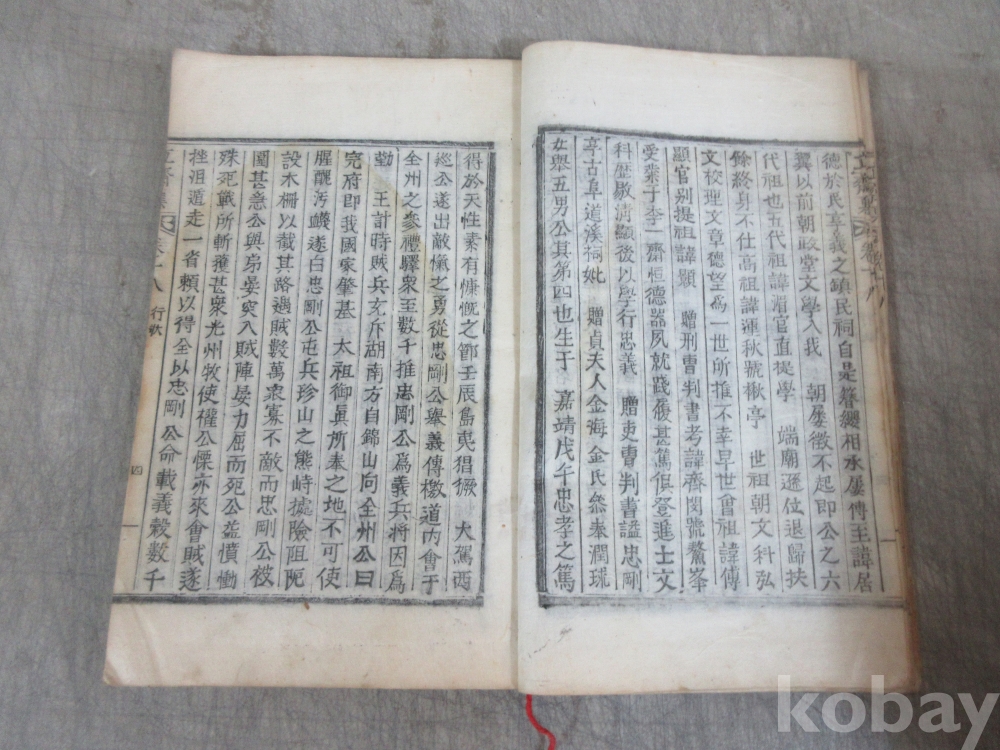 德於民享義之鎭民祠自是簪纓相水屢傳至諱居
翼以前朝政堂文學入我 朝屢徵不起即公之六
代祖也五代祖諱渭官直提學 端廟遜位退歸扶
餘終身不仕高祖諱運秋號楸亭 世祖朝文科弘
文校理文章德望爲一世所推不幸早世曾祖諱傳
顯官别提祖諱顥 贈刑曹判書考諱齊閔號鰲峯
受業于李一齋恒德器夙就踐履甚篤俱登進士文
科歷敭淸顯後以學行忠義 贈吏曹判書謚忠剛
享古阜道溪祠妣 贈貞夫人金海金氏叅奉潤琉
女舉五男公其第四也生于 嘉靖戊午忠孝之篤
得於天性素有慷慨之節壬辰島夷猖獗 大駕西
經公遂出敵愾之勇從忠剛公舉義傳檄道內會于
全州之參禮驛衆至數千推忠剛公爲義兵將因爲
勤 王計時賊兵充斥湖南方自錦山向全州公曰
完府即我國家肇基 太祖御眞所奉之地不可使
腥醜汚衊遂白忠剛公屯兵珍山之熊峙據險阻阨
設木柵以截其路遇賊數萬衆寡不敵而忠剛公被
圍甚急公與弟晏突入賊陣晏力屈而死公益憤慟
殊死戰所斬獲甚衆光州牧使權公慄亦來會賊遂
挫沮遁走一省賴以得全以忠剛公命載義穀數千
卷十八 行狀 四
kobay